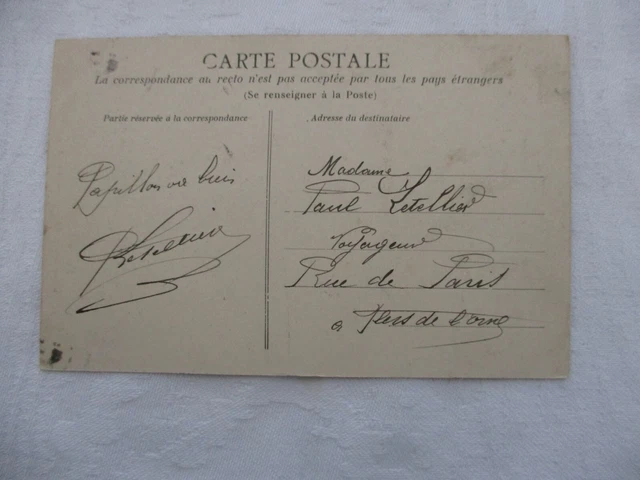 CARTE POSTALE
La correspondance au recto n'est pas acceptée par tous les pays étrangers
(Se renseigner à la Poste)
Partie réservée à la correspondance
Papillon
Letellier
Adresse du destinataire
Madame
Paul Letellier
Voyageur
Rue de Paris
à Flers de l'orne